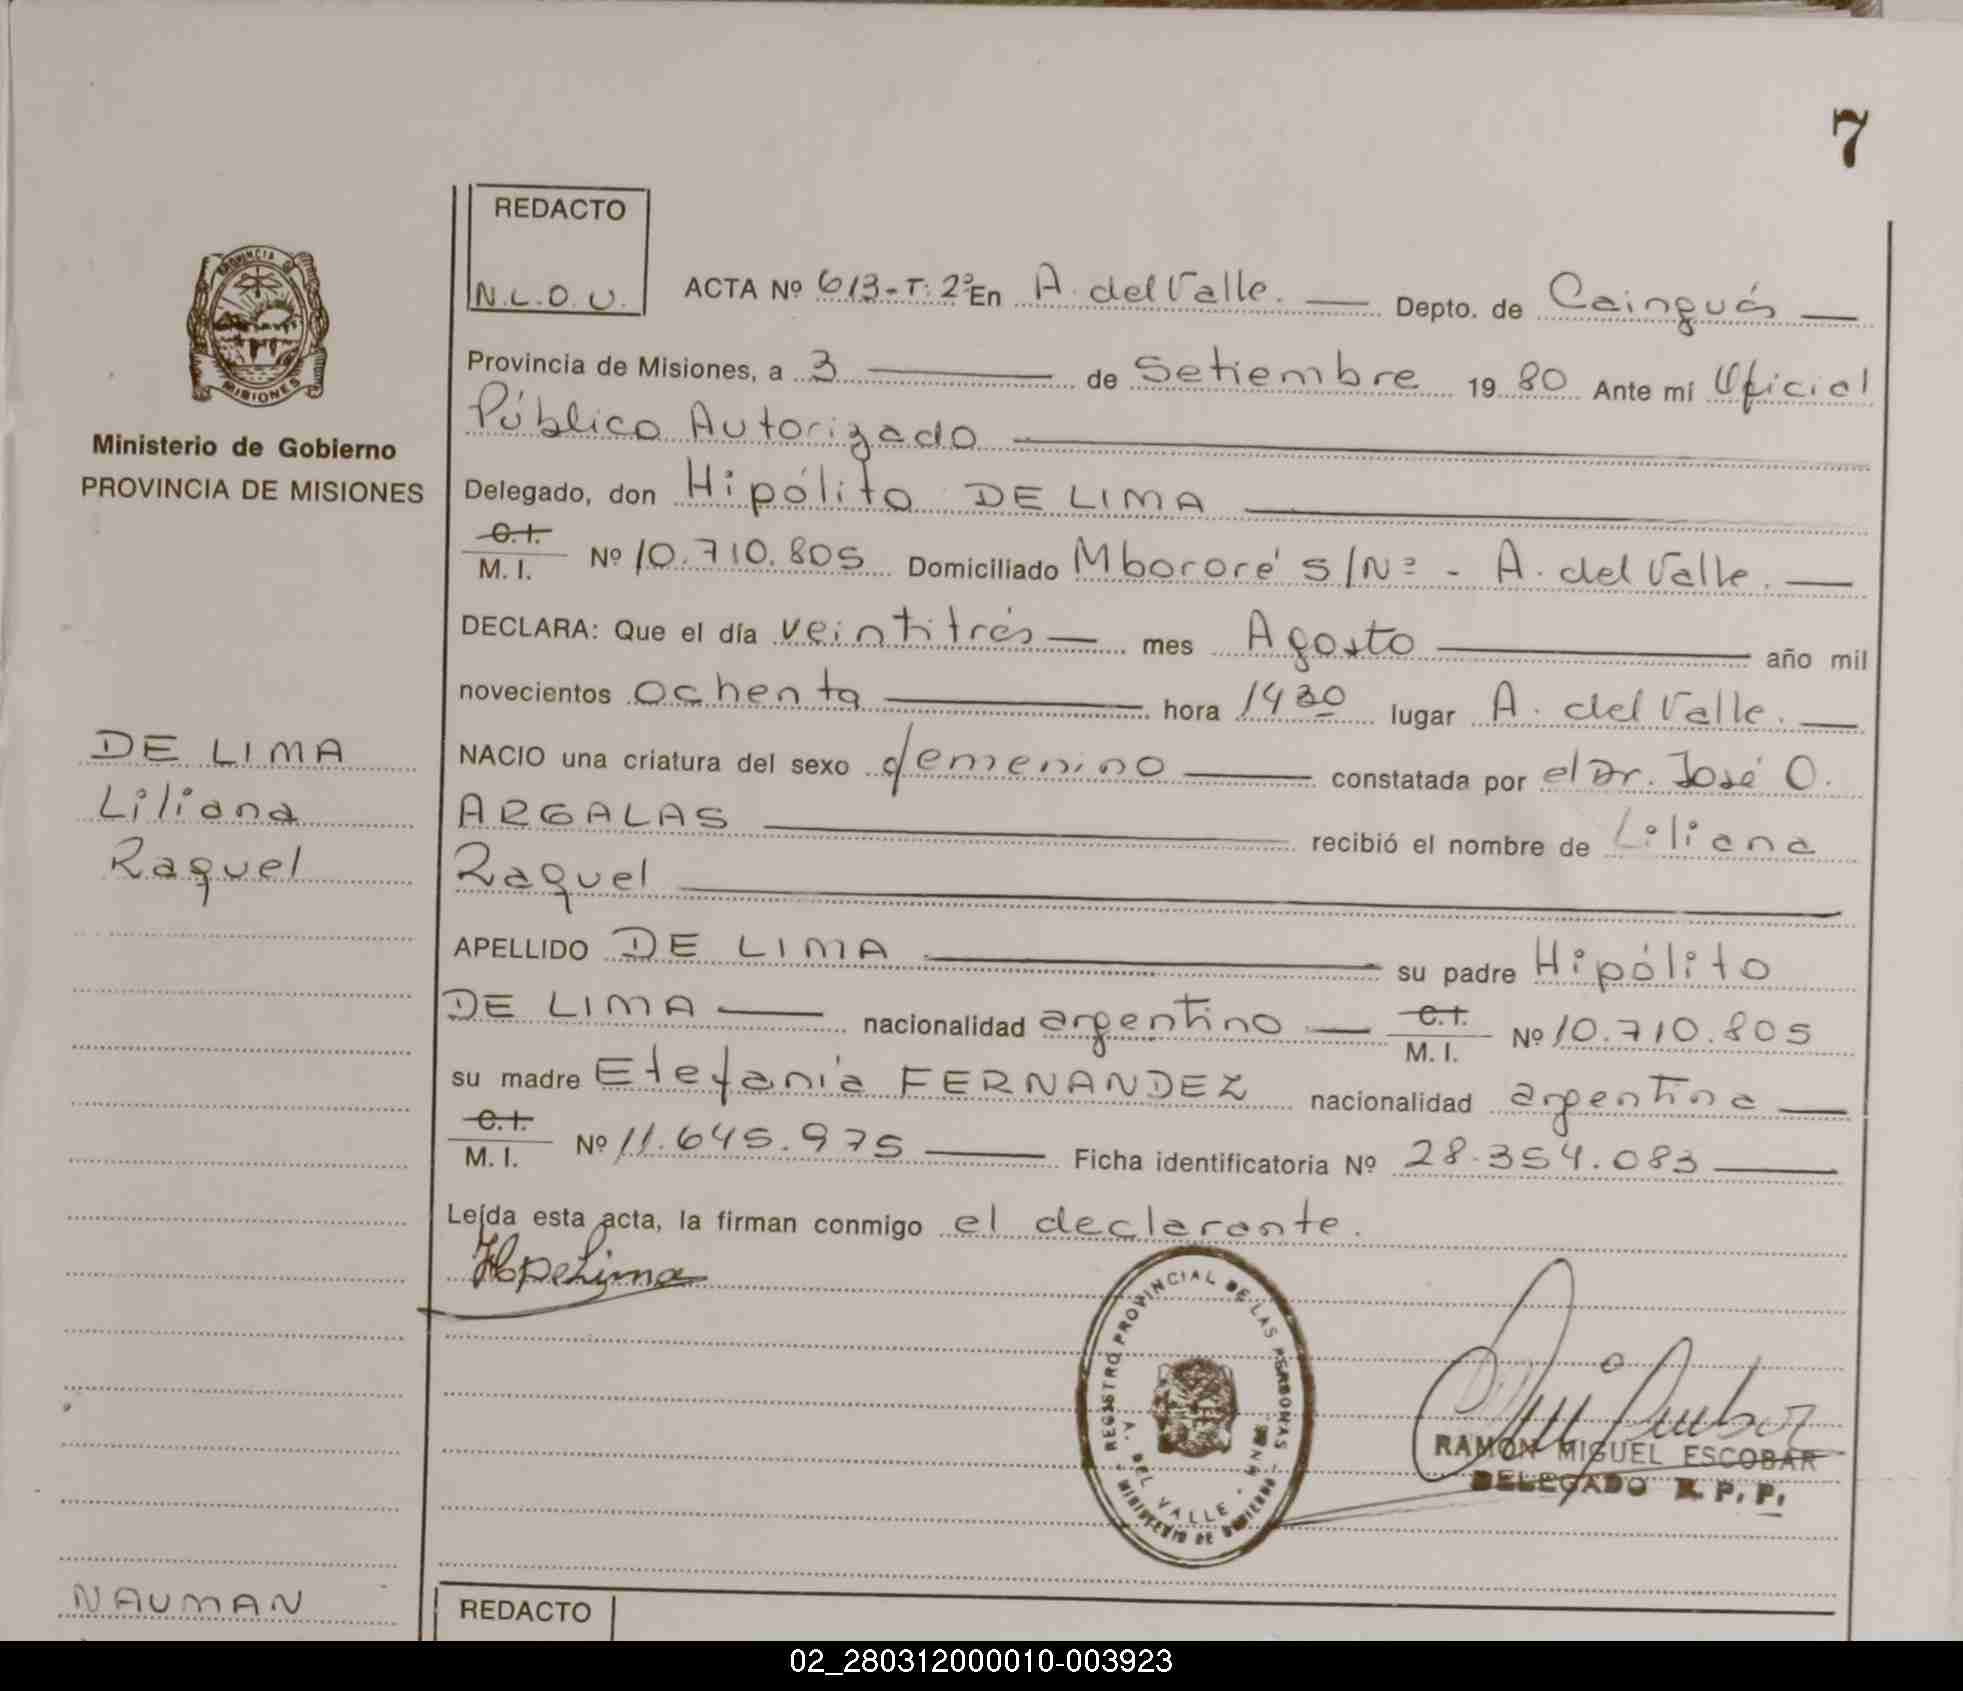 7
REDACTO
N.L.O.U.
ACTA Nº 613-T: 2º En A. del Valle. Depto. de Cainguás
Provincia de Misiones, a 3 de Setiembre 19 80 Ante mí Oficial
Público Autorizado
Delegado, don Hipólito DE LIMA
C.I.
M. I. Nº 10.710.805 Domiciliado Mbororé S/Nº - A. del Valle.
DECLARA: Que el día veintitrés mes Agosto año mil
novecientos ochenta hora 1430 lugar A. del Valle.
NACIO una criatura del sexo femenino constatada por el Dr. José O.
ARGALAS recibió el nombre de Liliana
Raquel
APELLIDO DE LIMA su padre Hipólito
DE LIMA nacionalidad argentino C.I. M. I. Nº 10.710.805
su madre Etefania FERNANDEZ nacionalidad argentina
C.I.
M. I. Nº 11.645.975 Ficha identificatoria Nº 28.354.083
Leída esta acta, la firman conmigo el declarante.
HDeLima
REGISTRO PROVINCIAL DE LAS PERSONAS
A. DEL VALLE
MINISTERIO DE GOBIERNO
RAMON MIGUEL ESCOBAR
DELEGADO R. P. P.
PROVINCIA DE
MISIONES
Ministerio de Gobierno
PROVINCIA DE MISIONES
DE LIMA
Liliana
Raquel
NAUMAN
REDACTO
02_280312000010-003923